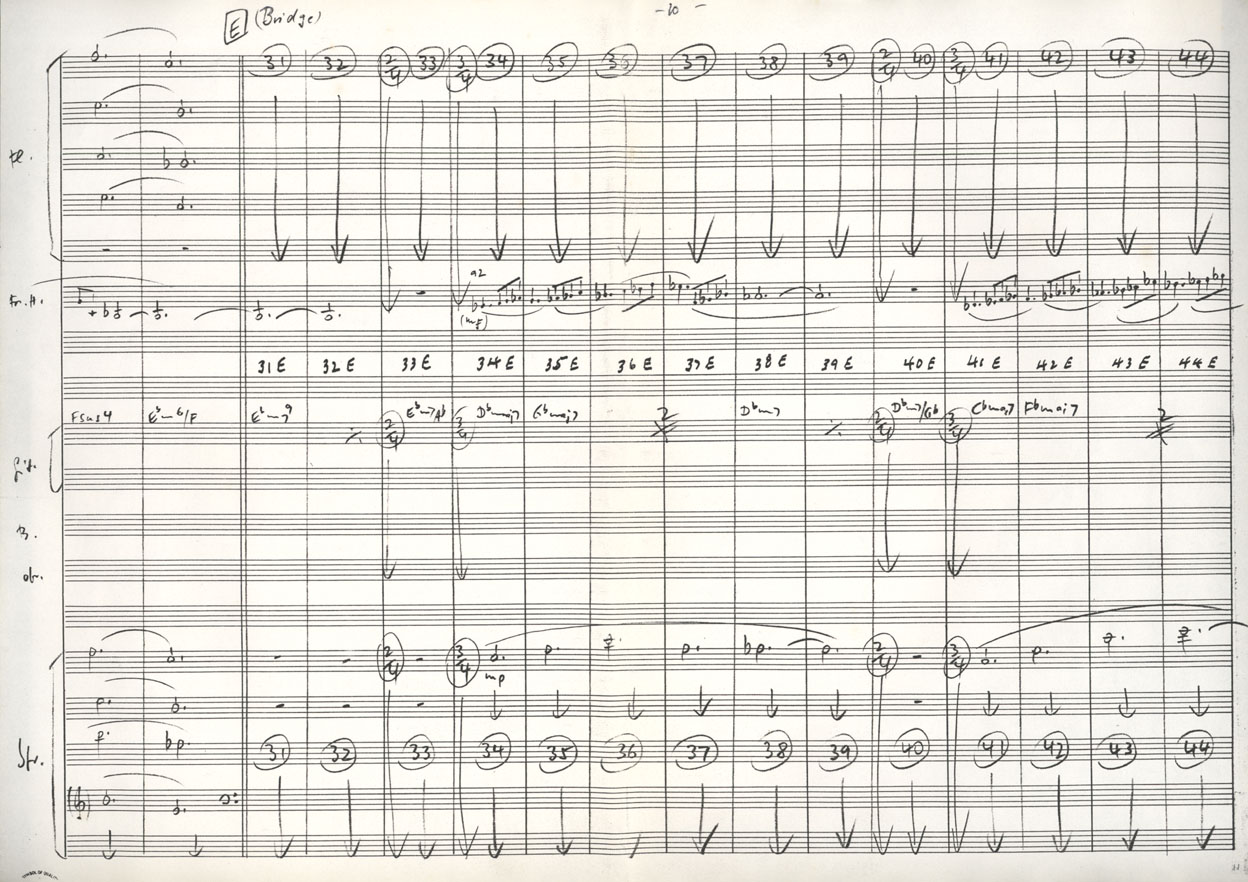 E (Bridge) - 10 -
31 32 2/4 33 3/4 34 35 36 37 38 39 2/4 40 3/4 41 42 43 44
Fl.
a2
Fr. H.
(mf)
31 E 32 E 33 E 34 E 35 E 36 E 37 E 38 E 39 E 40 E 41 E 42 E 43 E 44 E
Fsus4 E♭m6/F E♭m79 E♭m7/A♭ D♭maj7 G♭maj7 2 D♭m7 D♭m7/G♭ C♭maj7 F♭maj7 2
2/4 3/4 2/4 3/4
Git.
B.
2/4 3/4 2/4 3/4
mp
Str.
31 32 33 34 35 36 37 38 39 40 41 42 43 44
SYMBOL OF QUALITY